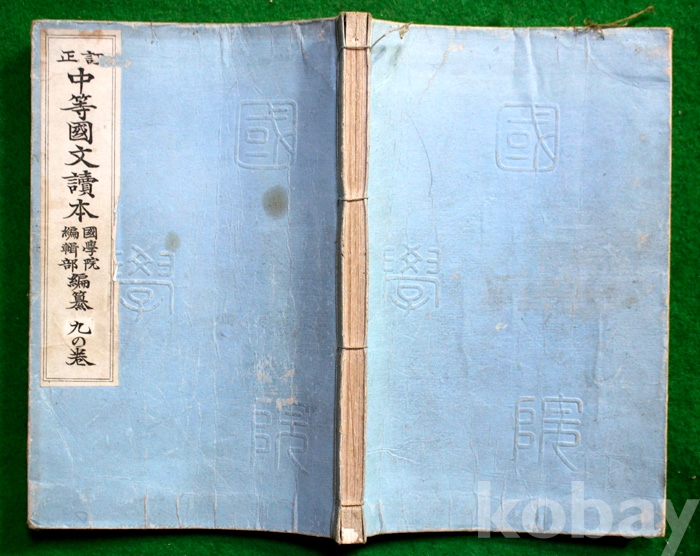 訂正
中等國文讀本
國學院
編輯部
編纂
九の卷
國
學
院
國
學
院
kobay